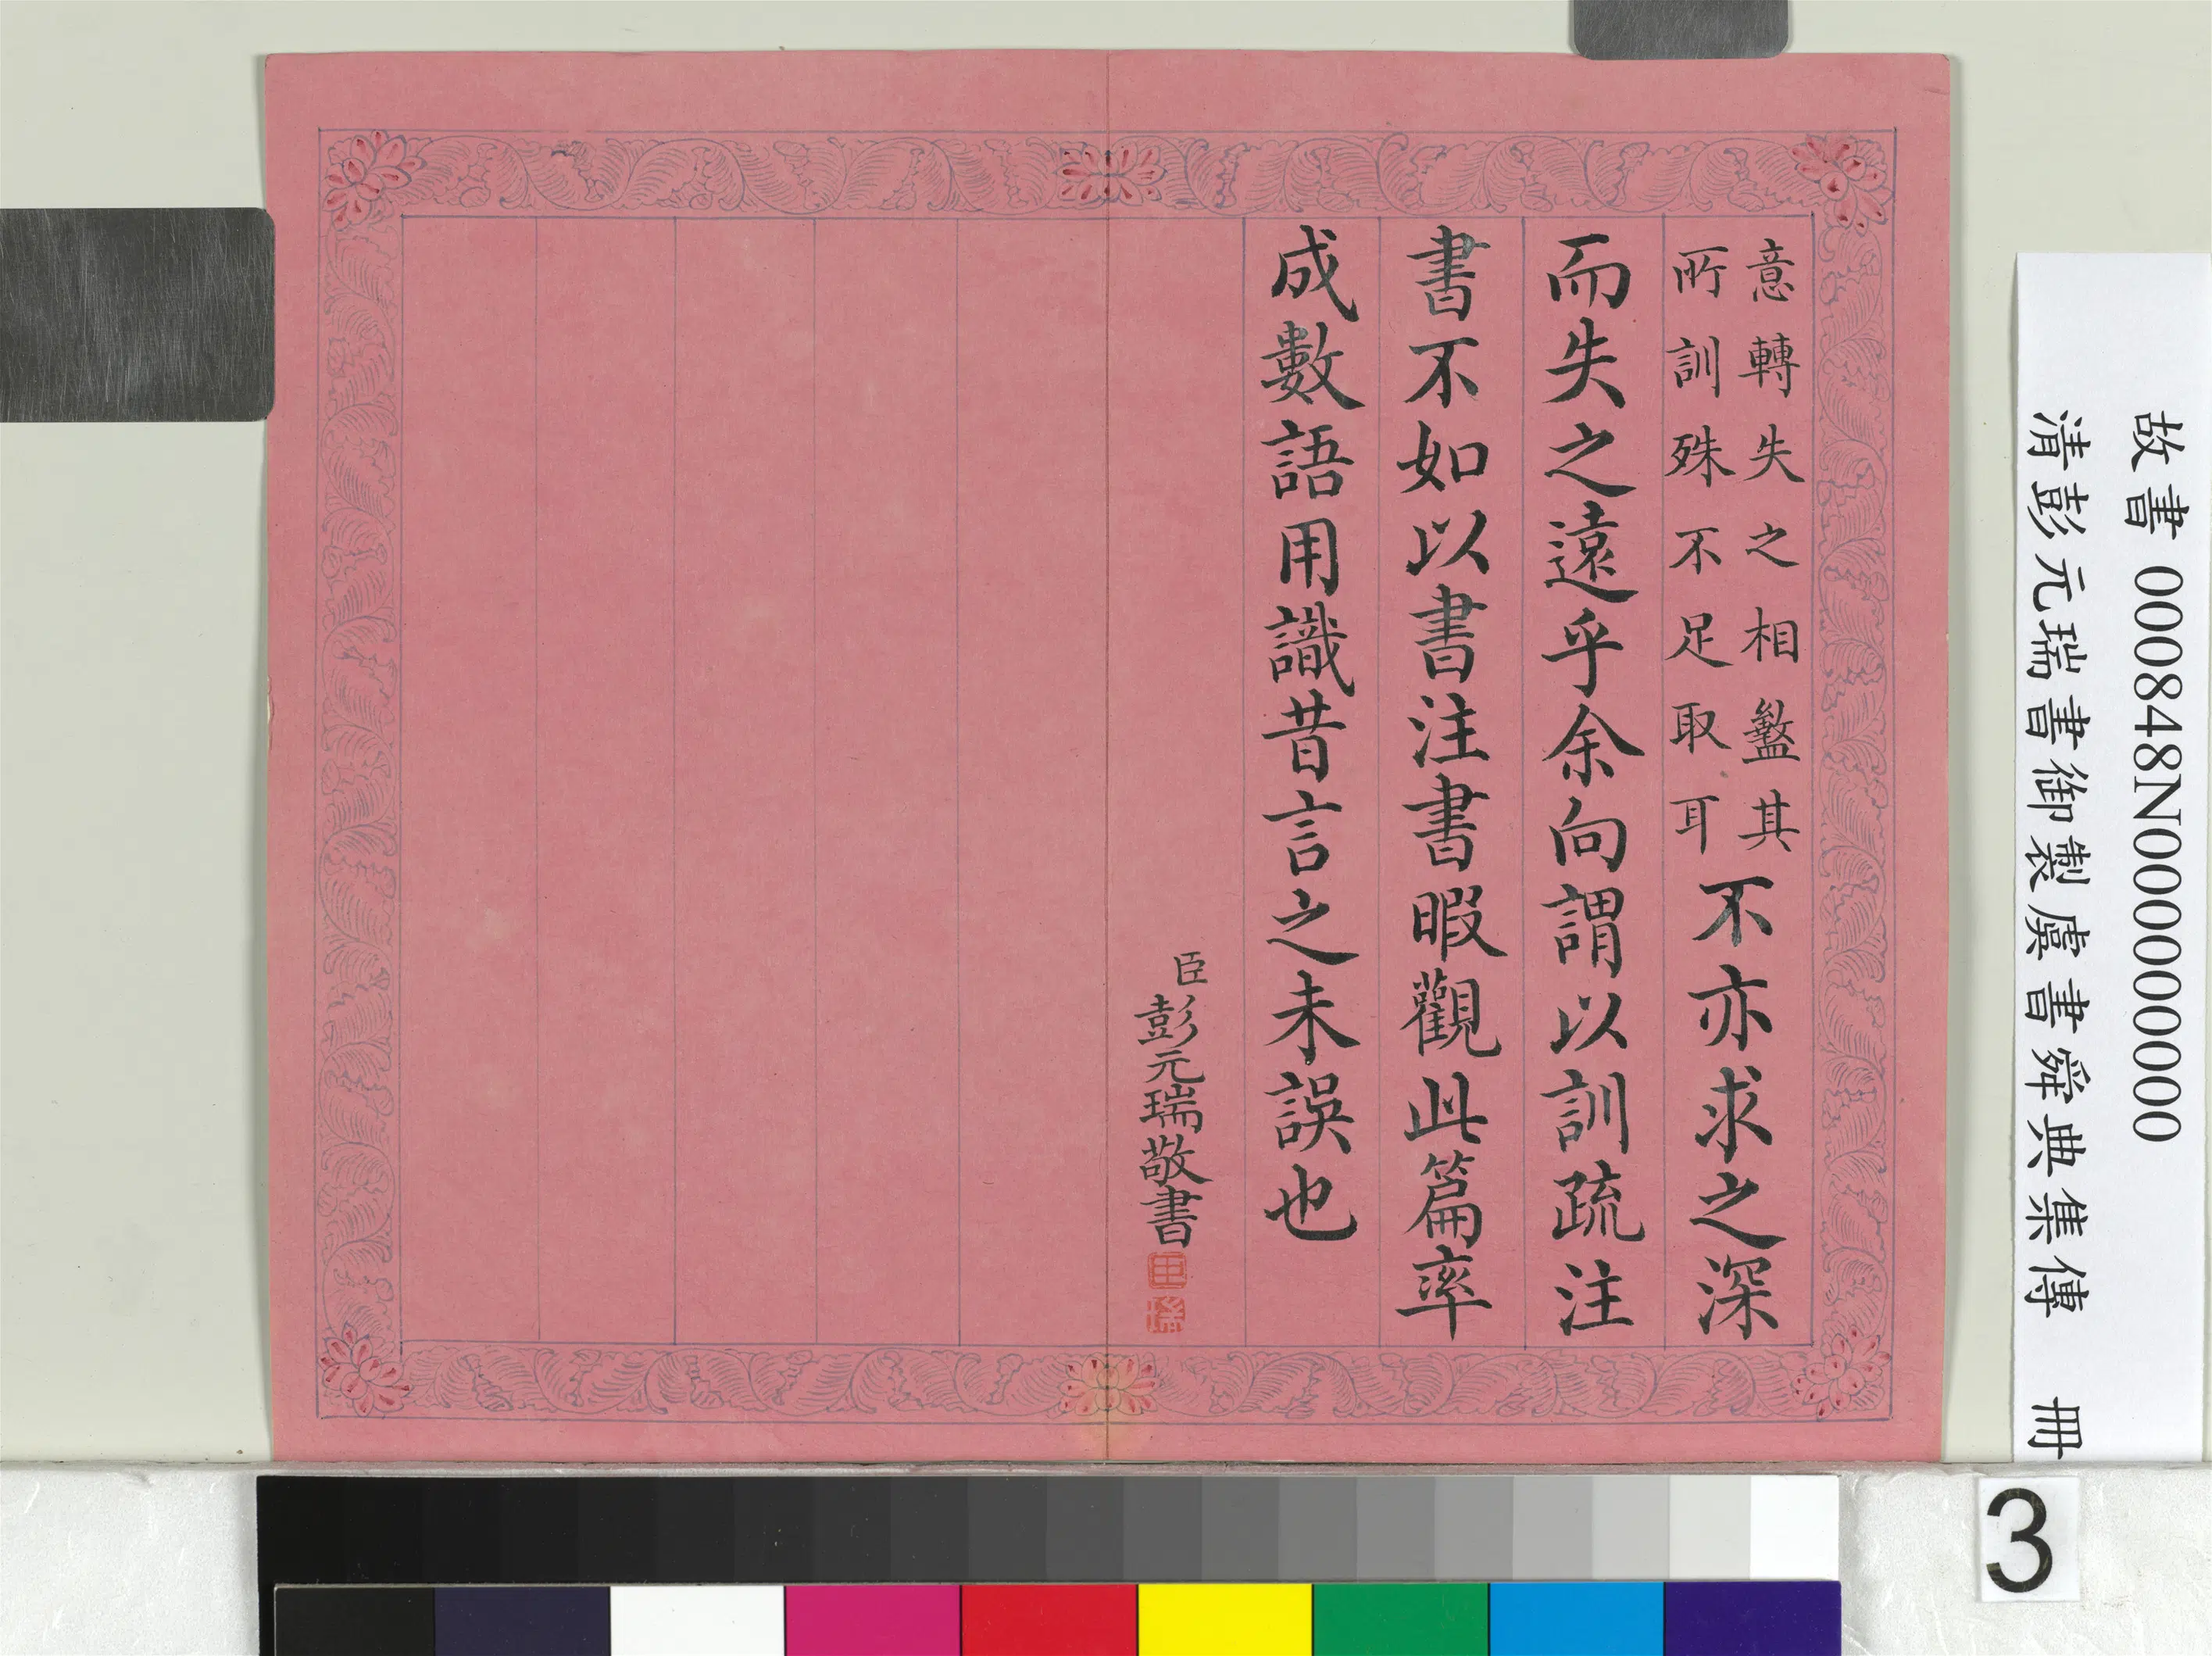 意轉失之相盭其
所訓殊不足取耳
不亦求之深
而失之遠乎余向謂以訓疏注
書不如以書注書暇觀此篇率
成數語用識昔言之未誤也
臣彭元瑞敬書
故書 000848N000000000
清彭元瑞書御製虞書舜典集傳 冊
3